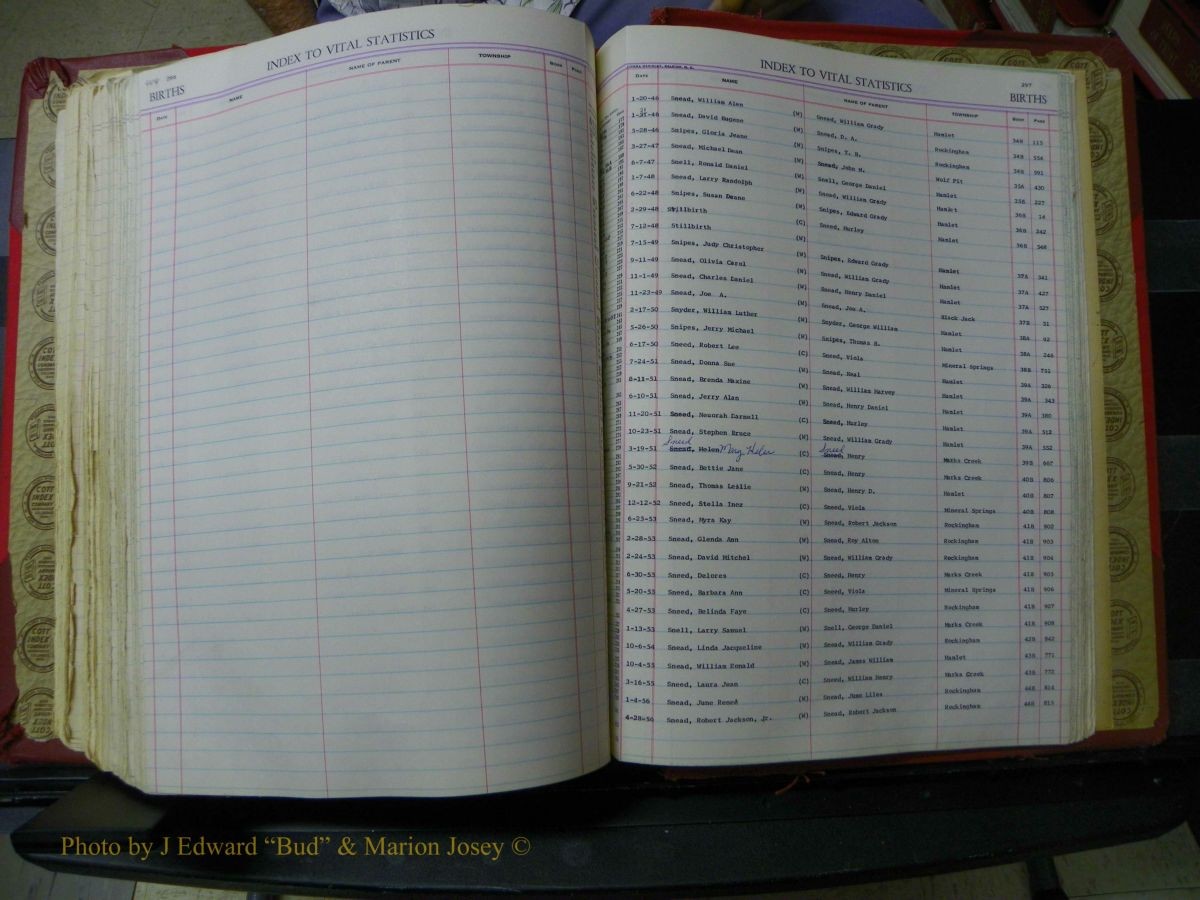 INDEX TO VITAL STATISTICS
BIRTHS
Date NAME NAME OF PARENT TOWNSHIP BOOK PAGE
INDEX TO VITAL STATISTICS
297
BIRTHS
DATE NAME NAME OF PARENT TOWNSHIP BOOK PAGE
1-20-46 Snead, William Alen (W) Snead, William Grady Hamlet 34B 113
1-31-46 Snead, David Eugene (W) Snead, D. A. Rockingham 34B 556
5-28-46 Snipes, Gloria Jeane (W) Snipes, T. B. Rockingham 34B 991
3-27-47 Snead, Michael Dean (W) Snead, John H. Wolf Pit 35A 430
6-7-47 Snell, Ronald Daniel (W) Snell, George Daniel Hamlet 35B 227
1-7-48 Snead, Larry Randolph (W) Snead, William Grady Hamlet 36B 14
6-22-48 Snipes, Susan Deane (W) Snipes, Edward Grady Hamlet 36B 242
2-29-48 Stillbirth (C) Snead, Hurley Hamlet 36B 568
7-12-48 Stillbirth (W)
7-15-49 Snipes, Judy Christopher (W) Snipes, Edward Grady Hamlet 37A 341
9-11-49 Snead, Olivia Carol (W) Snead, William Grady Hamlet 37A 427
11-1-49 Snead, Charles Daniel (W) Snead, Henry Daniel Hamlet 37A 527
11-23-49 Snead, Joe A. (W) Snead, Joe A. Black Jack 37B 31
2-17-50 Snyder, William Luther (W) Snyder, George William Hamlet 38A 92
5-26-50 Snipes, Jerry Michael (W) Snipes, Thomas B. Hamlet 38A 246
6-17-50 Sneed, Robert Lee (C) Sneed, Viola Mineral Springs 38B 751
7-24-51 Snead, Donna Sue (W) Snead, Neal Hamlet 39A 326
8-11-51 Snead, Brenda Maxine (W) Snead, William Harvey Hamlet 39A 343
6-10-51 Snead, Jerry Alan (W) Snead, Henry Daniel Hamlet 39A 380
11-20-51 Sneed, Neuorah Darnell (C) Sneed, Hurley Hamlet 39A 512
10-23-51 Snead, Stephen Bruce (W) Snead, William Grady Hamlet 39A 552
Sneed Sneed
3-19-51 Snead, Helen Mary Helen (C) Snead, Henry Marks Creek 39B 667
5-30-52 Sneed, Bettie Jane (C) Sneed, Henry Marks Creek 40B 806
9-21-52 Snead, Thomas Leslie (W) Snead, Henry D. Hamlet 40B 807
12-12-52 Sneed, Stella Inez (C) Sneed, Viola Mineral Springs 40B 808
6-25-53 Snead, Myra Kay (W) Snead, Robert Jackson Rockingham 41B 902
2-28-53 Snead, Glenda Ann (W) Snead, Roy Alton Rockingham 41B 903
2-24-53 Snead, David Mitchel (W) Snead, William Grady Rockingham 41B 904
6-30-53 Sneed, Delores (C) Sneed, Henry Marks Creek 41B 905
5-20-53 Sneed, Barbara Ann (C) Sneed, Viola Mineral Springs 41B 906
4-27-53 Sneed, Belinda Faye (C) Sneed, Hurley Rockingham 41B 907
1-13-53 Snell, Larry Samuel (W) Snell, George Daniel Marks Creek 41B 908
10-6-54 Snead, Linda Jacqueline (W) Snead, William Grady Rockingham 42B 842
10-4-55 Snead, William Ronald (W) Snead, James William Hamlet 43B 771
3-16-55 Sneed, Laura Jean (C) Sneed, William Henry Marks Creek 43B 772
1-4-56 Snead, June Reneé (W) Snead, June Liles Rockingham 44B 814
4-28-56 Snead, Robert Jackson, Jr. (W) Snead, Robert Jackson Rockingham 44B 815
Photo by J Edward “Bud” & Marion Josey ©